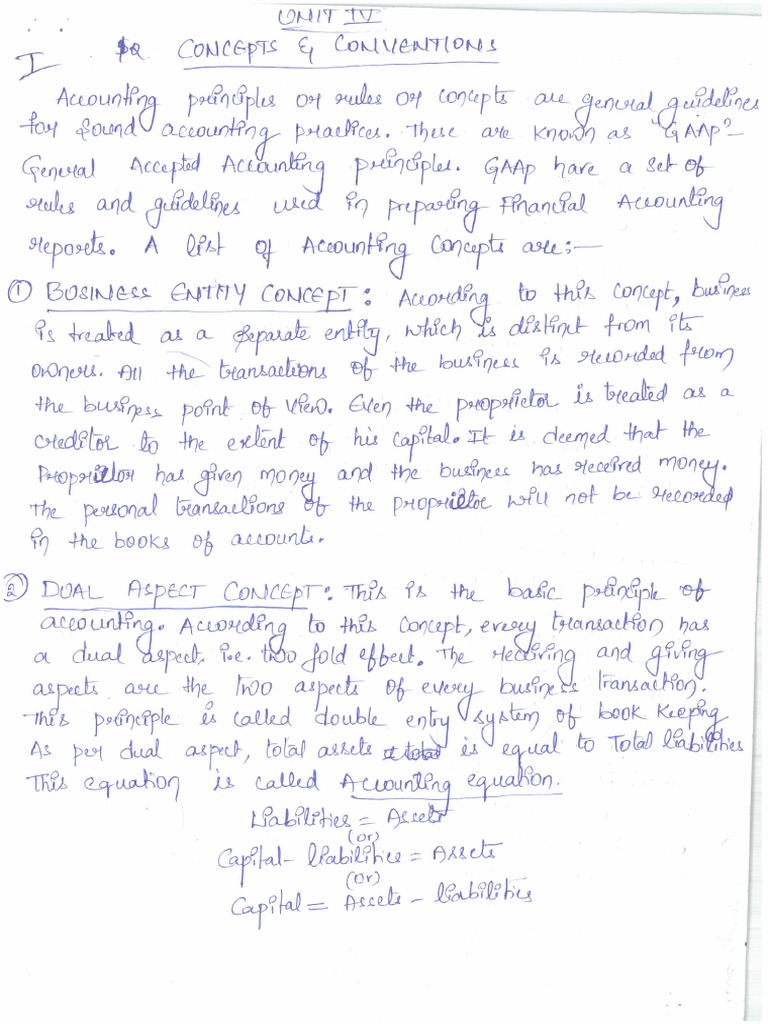 UNIT IV
I CONCEPTS & CONVENTIONS
Accounting principles or rules or concepts are general guidelines
for sound accounting practices. These are known as "GAAP"-
General Accepted Accounting principles. GAAP have a set of
rules and guidelines used in preparing Financial Accounting
reports. A list of Accounting Concepts are:—
① BUSINESS ENTITY CONCEPT: According to this concept, business
is treated as a separate entity, which is distinct from its
owners. All the transactions of the business is recorded from
the business point of view. Even the proprietor is treated as a
creditor to the extent of his capital. It is deemed that the
Proprietor has given money and the business has received money.
The personal transactions of the proprietor will not be recorded
in the books of accounts.
② DUAL ASPECT CONCEPT: This is the basic principle of
accounting. According to this concept, every transaction has
a dual aspect, i.e. two fold effect. The receiving and giving
aspects are the two aspects of every business transaction.
This principle is called double entry system of book keeping
As per dual aspect, total assets is equal to Total liabilities
This equation is called Accounting equation.
Liabilities = Assets
(or)
Capital - liabilities = Assets
(or)
Capital = Assets - liabilities